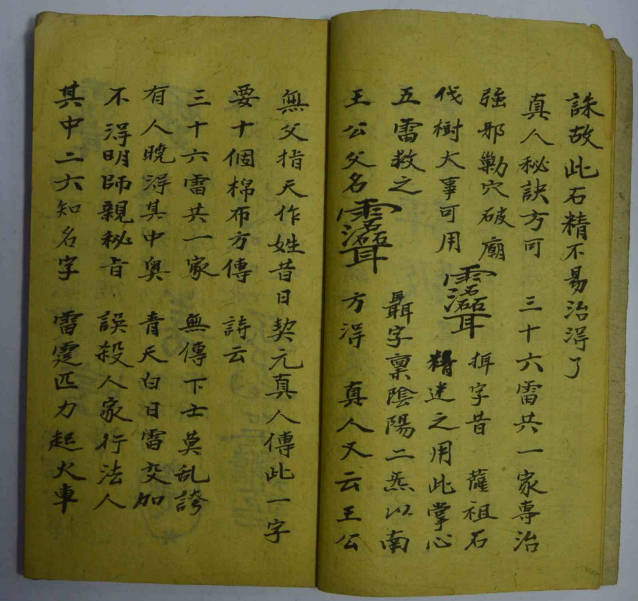 誅故此石精不易治淂了
真人秘訣方可　三十六雷共一家專治
強邪勦穴破廟　　揖字昔　薩祖石
伐樹大事可用　　精迷之用此掌心
五雷救之　　字稟陰陽二炁以南
王公父名　　方淂　真人又云王公
無父指天作姓昔日契元真人傳此一字
要十個棉布方傳　詩云
三十六雷共一家　無傳下士莫乱誇
有人曉淂其中奧　青天白日雷交加
不淂明師親秘旨　誤殺人家行法人
其中二六知名字　雷霆匹力起火車